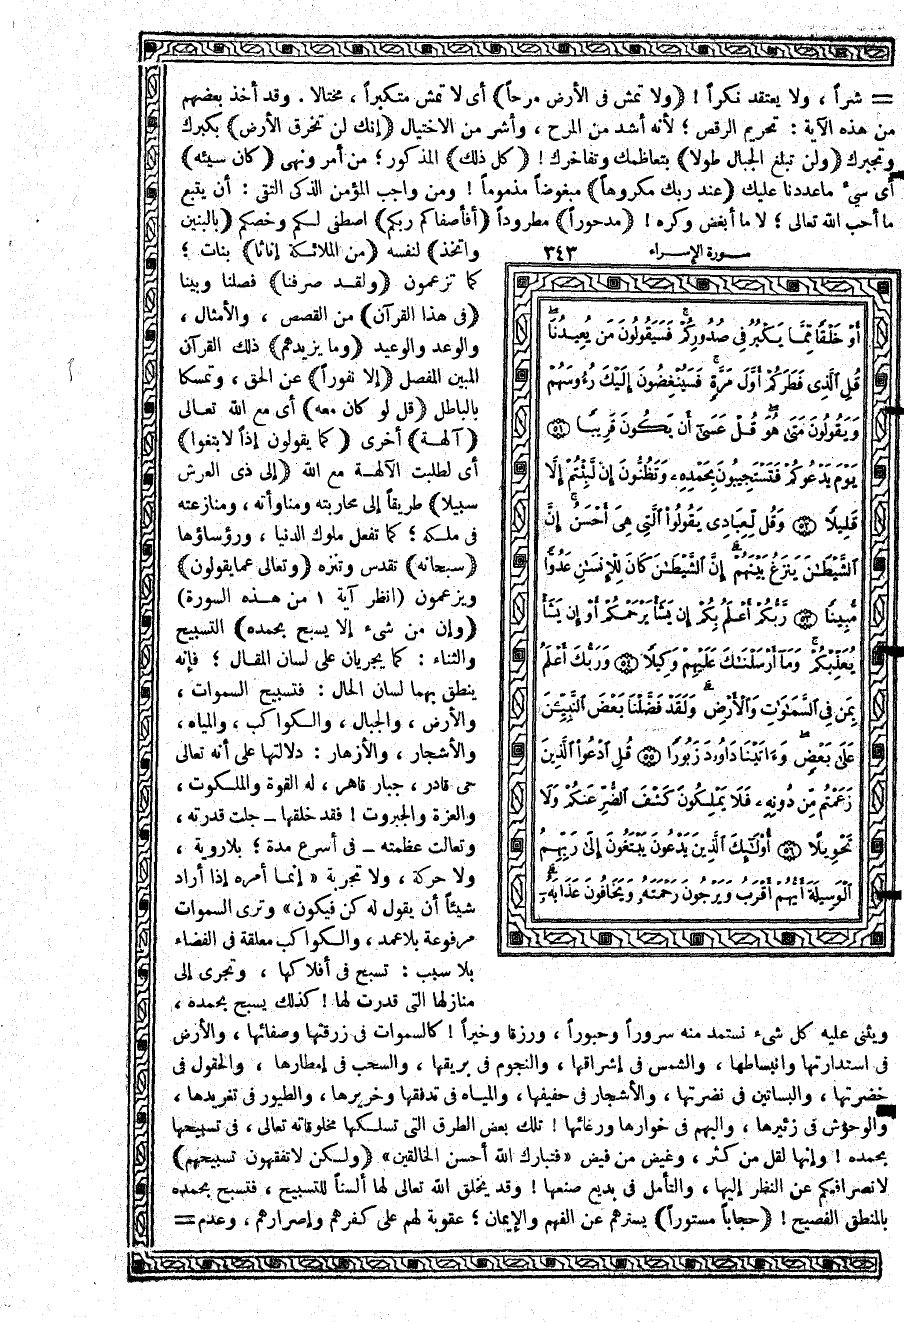 = شراً ، ولا يعتقد نكراً ! (ولا تمش فى الأرض مرحاً) أى لا تمش متكبراً ، مختالا . وقد أخذ بعضهم
من هذه الآية : تحريم الرقص ؛ لأنه أشد من المرح ، وأشر من الاختيال (إنك لن تخرق الأرض) بكبرك
وتجبرك (ولن تبلغ الجبال طولا) بتعاظمك وتفاخرك ! (كل ذلك) المذكور ؛ من أمر ونهى (كان سيئه)
أى سيىء ماعددنا عليك (عند ربك مكروهاً) مبغوضاً مذموماً ! ومن واجب المؤمن الذكى التقى : أن يتبع
ما أحب الله تعالى ؛ لا ما أبغض وكره ! (مدحوراً) مطروداً (أفأصفاكم ربكم) اصطفى لكم وخصكم (بالبنين
واتخذ) لنفسه (من الملائكة إناثا) بنات ؛
كما تزعمون (ولقد صرفنا) فصلنا وبينا
(فى هذا القرآن) من القصص ، والأمثال ،
والوعد والوعيد (وما يزيدهم) ذلك القرآن
المبين المفصل (إلا نفوراً) عن الحق ، وتمسكا
بالباطل (قل لو كان معه) أى مع الله تعالى
(آلهة) أخرى (كما يقولون إذاً لابتغوا)
أى لطلبت الآلهة مع الله (إلى ذى العرش
سبيلا) طريقاً إلى محاربته ومناوأته ، ومنازعته
فى ملكه ؛ كما تفعل ملوك الدنيا ، ورؤساؤها
(سبحانه) تقدس وتنزه (وتعالى عما يقولون)
ويزعمون (انظر آية ١ من هذه السورة)
(وإن من شىء إلا يسبح بحمده) التسبيح
والثناء : كما يجريان على لسان المقال ؛ فإنه
ينطق بهما لسان الحال : فتسبيح السموات ،
والأرض ، والجبال ، والكواكب ، والمياه ،
والأشجار ، والأزهار : دلالتها على أنه تعالى
حى قادر ، جبار قاهر ، له القوة والملكوت ،
والعزة والجبروت ! فقد خلقها – جلت قدرته ،
وتعالت عظمته – فى أسرع مدة ؛ بلاروية ،
ولا حركة ، ولا تجربة « إنما أمره إذا أراد
شيئاً أن يقول له كن فيكون» وترى السموات
مرفوعة بلاعمد ، والكواكب معلقة فى الفضاء
بلا سبب : تسبح فى أفلاكها ، وتجرى إلى
منازلها التى قدرت لها ! كذلك يسبح بحمده ،
سورة الإسراء ٣٤٣
أَوْ خَلْقًا مِّمَّا يَكْبُرُ فِى صُدُورِكُمْ ۚ فَسَيَقُولُونَ مَن يُعِيدُنَا ۖ
قُلِ ٱلَّذِى فَطَرَكُمْ أَوَّلَ مَرَّةٍ ۚ فَسَيُنْغِضُونَ إِلَيْكَ رُءُوسَهُمْ
وَيَقُولُونَ مَتَىٰ هُوَ ۖ قُلْ عَسَىٰٓ أَن يَكُونَ قَرِيبًا ۝٥١
يَوْمَ يَدْعُوكُمْ فَتَسْتَجِيبُونَ بِحَمْدِهِۦ وَتَظُنُّونَ إِن لَّبِثْتُمْ إِلَّا
قَلِيلًا ۝٥٢ وَقُل لِّعِبَادِى يَقُولُوا۟ ٱلَّتِى هِىَ أَحْسَنُ ۚ إِنَّ
ٱلشَّيْطَـٰنَ يَنزَغُ بَيْنَهُمْ ۚ إِنَّ ٱلشَّيْطَـٰنَ كَانَ لِلْإِنسَـٰنِ عَدُوًّا
مُّبِينًا ۝٥٣ رَّبُّكُمْ أَعْلَمُ بِكُمْ ۖ إِن يَشَأْ يَرْحَمْكُمْ أَوْ إِن يَشَأْ
يُعَذِّبْكُمْ ۚ وَمَآ أَرْسَلْنَـٰكَ عَلَيْهِمْ وَكِيلًا ۝٥٤ وَرَبُّكَ أَعْلَمُ
بِمَن فِى ٱلسَّمَـٰوَٰتِ وَٱلْأَرْضِ ۗ وَلَقَدْ فَضَّلْنَا بَعْضَ ٱلنَّبِيِّـۧنَ
عَلَىٰ بَعْضٍ ۖ وَءَاتَيْنَا دَاوُۥدَ زَبُورًا ۝٥٥ قُلِ ٱدْعُوا۟ ٱلَّذِينَ
زَعَمْتُم مِّن دُونِهِۦ فَلَا يَمْلِكُونَ كَشْفَ ٱلضُّرِّ عَنكُمْ وَلَا
تَحْوِيلًا ۝٥٦ أُو۟لَـٰٓئِكَ ٱلَّذِينَ يَدْعُونَ يَبْتَغُونَ إِلَىٰ رَبِّهِمُ
ٱلْوَسِيلَةَ أَيُّهُمْ أَقْرَبُ وَيَرْجُونَ رَحْمَتَهُۥ وَيَخَافُونَ عَذَابَهُۥٓ ۚ
ويثنى عليه كل شىء نستمد منه سروراً وحبوراً ، ورزقا وخيراً ! كالسموات فى زرقتها وصفائها ، والأرض
فى استدارتها وانبساطها ، والشمس فى إشراقها ، والنجوم فى بريقها ، والسحب فى إمطارها ، والحقول فى
خضرتها ، والبساتين فى نضرتها ، والأشجار فى حفيفها ، والمياه فى تدفقها وخريرها ، والطيور فى تغريدها ،
والوحوش فى زئيرها ، والبهم فى خوارها ورغائها ! تلك بعض الطرق التى تسلكها مخلوقاته تعالى ، فى تسبيحها
بحمده ! وإنها لقل من كثر ، وغيض من فيض «فتبارك الله أحسن الخالقين» (ولكن لاتفقهون تسبيحهم)
لانصرافكم عن النظر إليها ، والتأمل فى بديع صنعها ! وقد يخلق الله تعالى لها ألسناً للتسبيح ، فتسبح بحمده
بالمنطق الفصيح ! (حجاباً مستوراً) يسترهم عن الفهم والإيمان ؛ عقوبة لهم على كفرهم وإصرارهم ، وعدم =